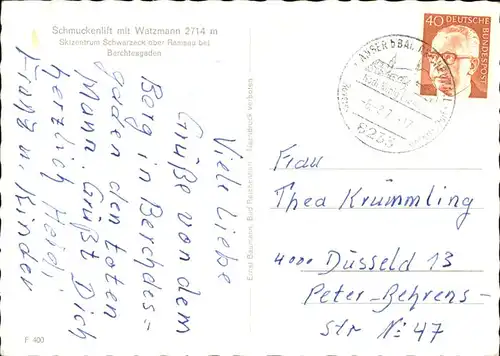 Schmuckenlift mit Watzmann 2714 m
Skizentrum Schwarzeck über Ramsau bei
Berchtesgaden
Viele liebe
Grüße von dem
Berg in Berchdes=
gaden den toten
Mann. Grüßt Dich
herzlich Heidi,
Franz u. Kinder
Ernst Baumann, Bad Reichenhall
Nachdruck verboten
F 400
40 DEUTSCHE
BUNDESPOST
8233
Frau
Thea Krümmling
4000 Düsseld 13
Peter-Behrens-
Str No 47